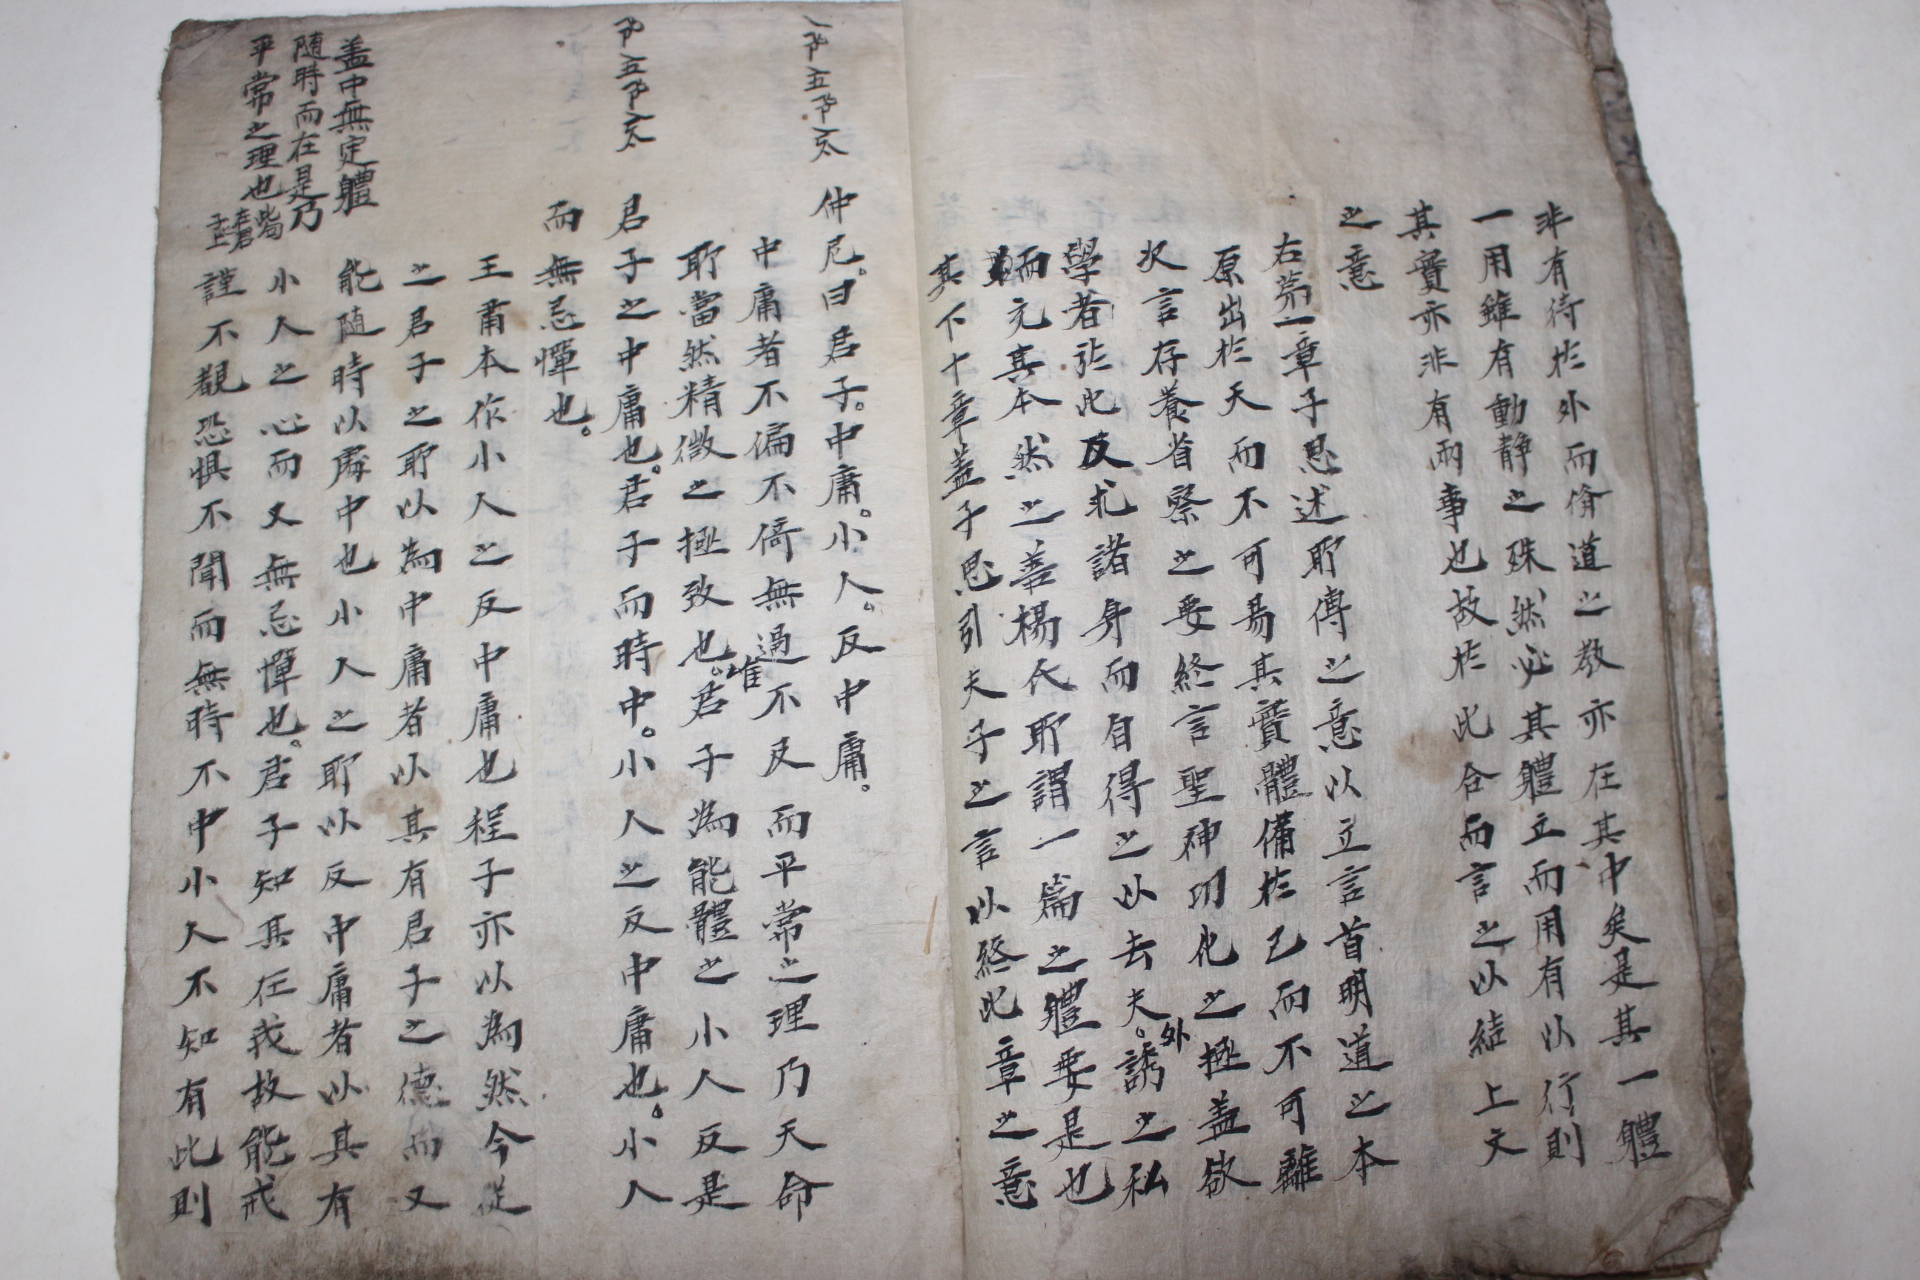 非有待於外而脩道之教亦在其中矣是其一體
一用雖有動静之殊然必其體立而用有以行則
其實亦非有兩事也故於此合而言之以結上文
之意
右第一章子思述所傳之意以立言首明道之本
原出於天而不可易其實體備於己而不可離
次言存養省察之要終言聖神功化之極盖欲
學者於此反求諸身而自得之以去夫外誘之私
而充其本然之善楊氏所謂一篇之體要是也
其下十章盖子思引夫子之言以終此章之意
仲尼。曰君子。中庸。小人。反中庸。
中庸者不偏不倚無過不及而平常之理乃天命
所當然精微之極致也。唯君子為能體之小人反是
君子之中庸也。君子而時中。小人之反中庸也。小人
而無忌憚也。
王肅本作小人之反中庸也程子亦以為然今從
之君子之所以為中庸者以其有君子之德而又
盖中無定體
随時而在是乃
平常之理也
能随時以處中也小人之所以反中庸者以其有
小人之心而又無忌憚也。君子知其在我故能戒
謹不覩恐惧不聞而無時不中小人不知有此則